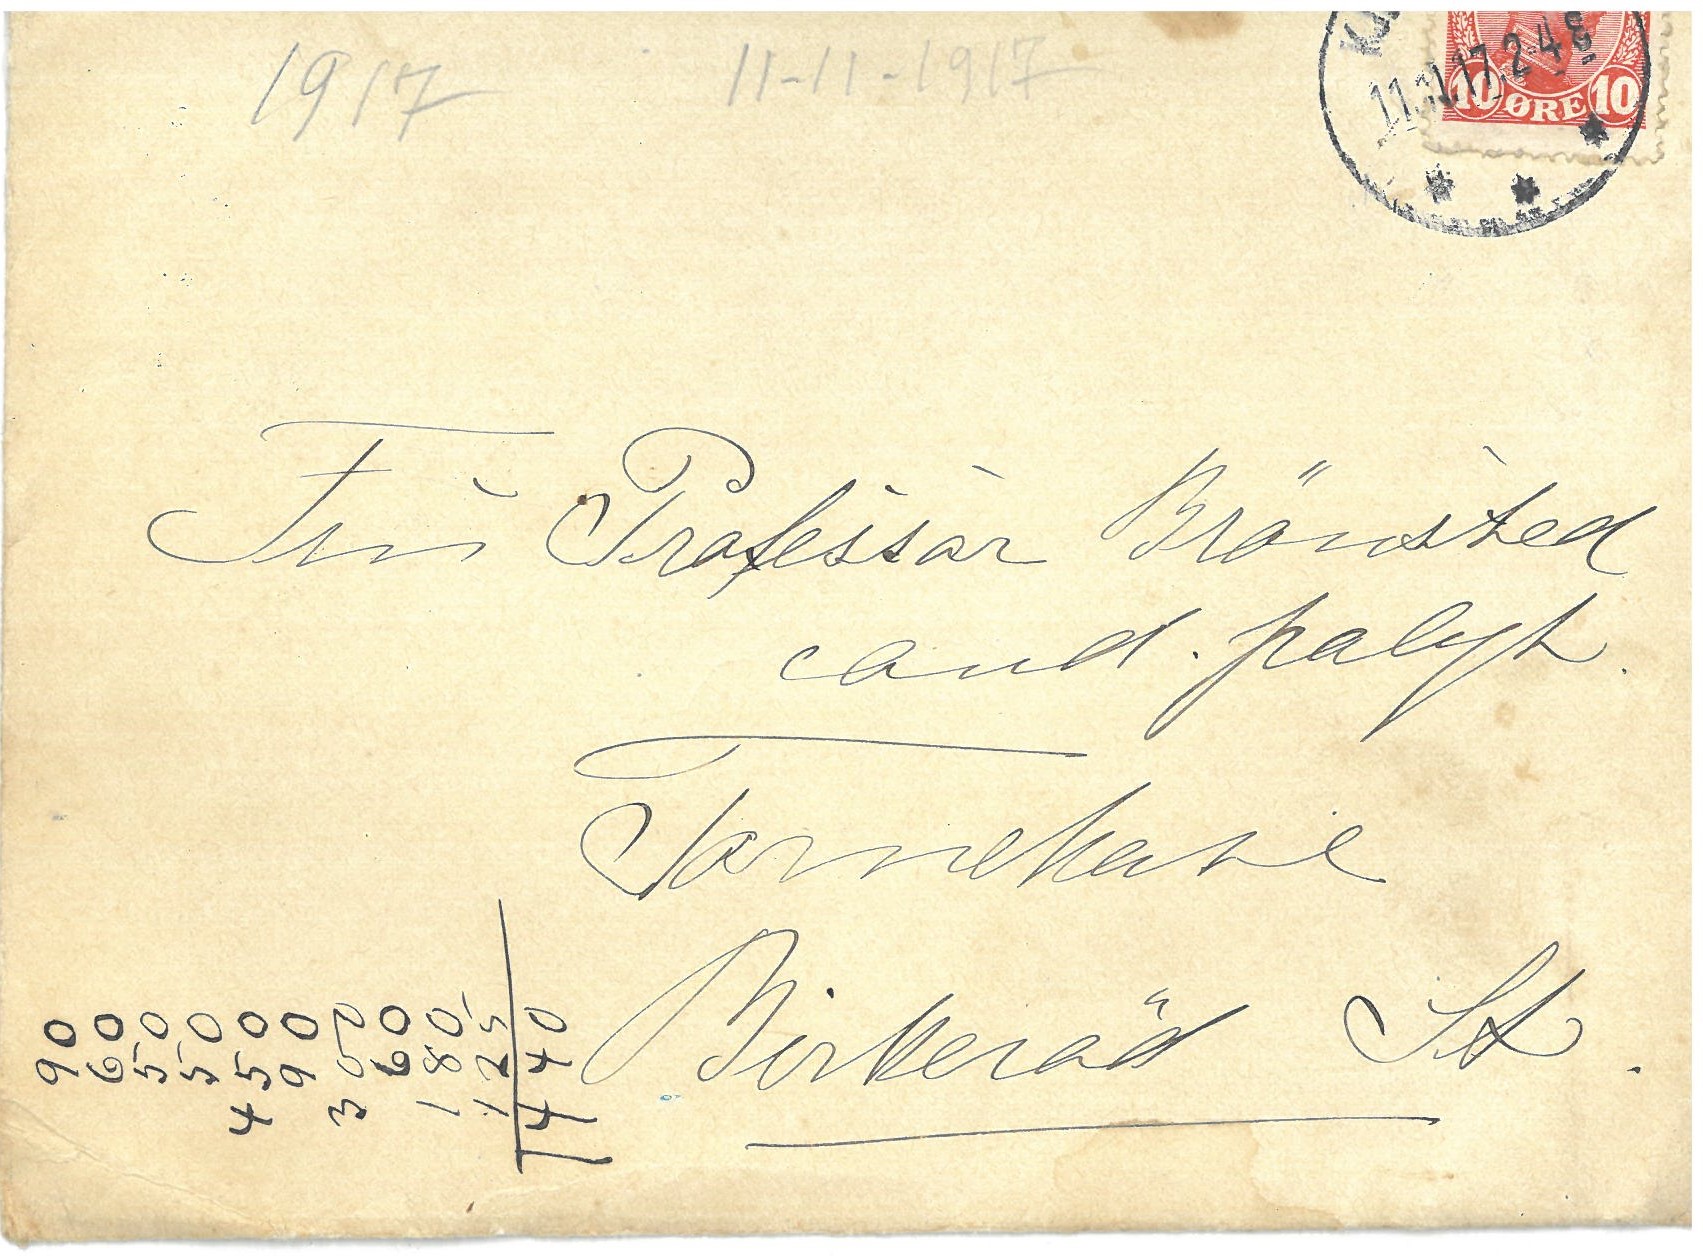 1917
11-11-1917
11.11.17. 2-4 E
10 ØRE 10
Fru Professor Brönsted
cand. polyt.
Birkeröd St.
90
60
50
50
450
90
300
60
180
125
1440